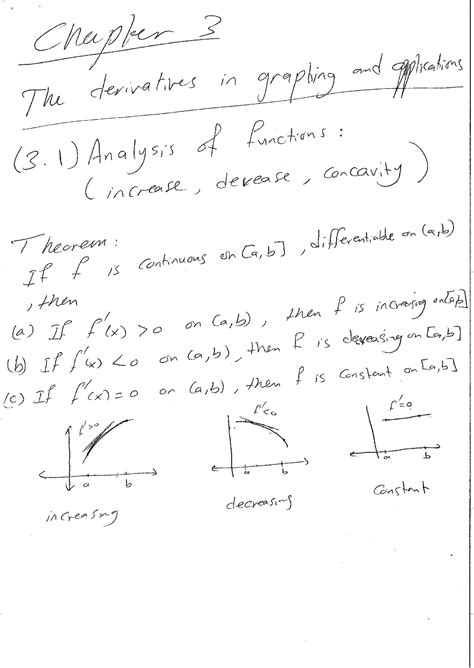 Chapter 3
The derivatives in graphing and applications
(3.1) Analysis of functions :
(increase, decrease, concavity)
Theorem :
If f is continuous on [a,b], differentiable on (a,b)
, then
(a) If f'(x) > 0 on (a,b), then f is increasing on [a,b]
(b) If f'(x) < 0 on (a,b), then f is decreasing on [a,b]
(c) If f'(x) = 0 on (a,b), then f is constant on [a,b]
f'>0 f'<0 f'=0
a b a b a b
increasing decreasing Constant